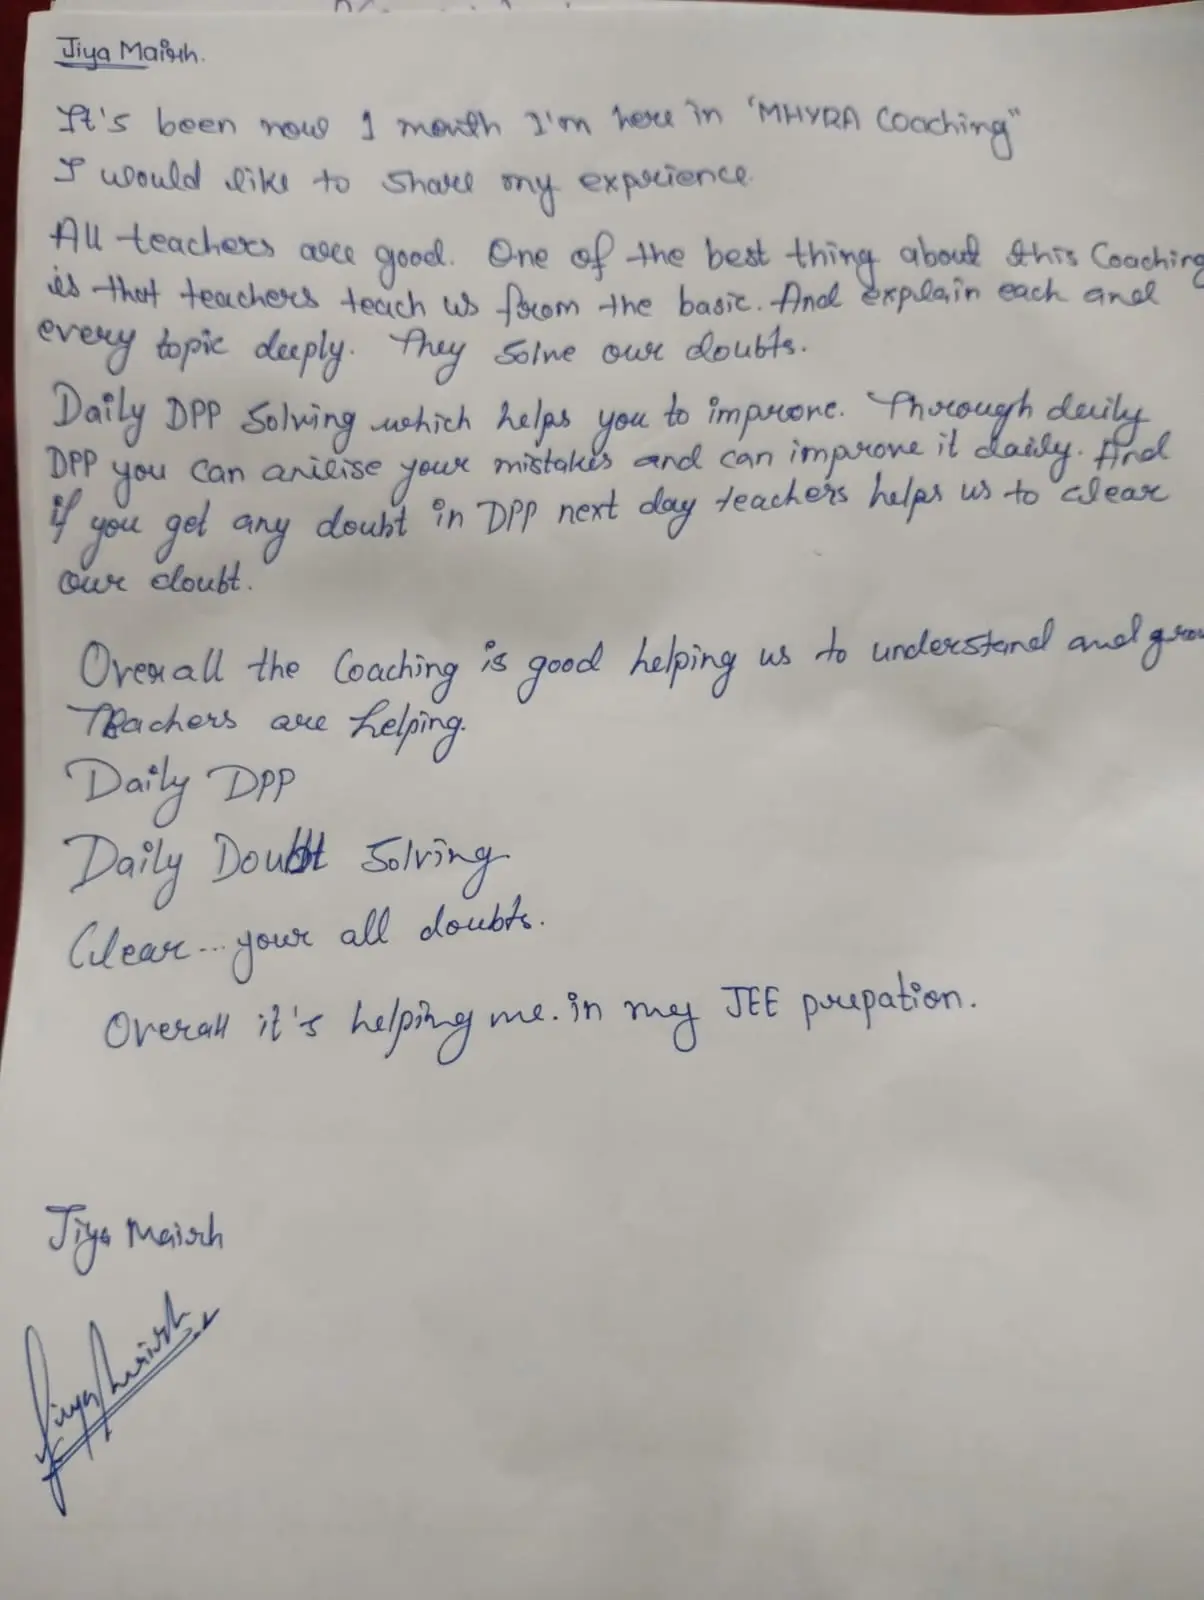 Jiya Mairh.
It's been now 1 month I'm here in "MHYRA Coaching"
I would like to share my exprience.
All teachers are good. One of the best thing about this Coaching
is that teachers teach us from the basic. And explain each and
every topic deeply. They solve our doubts.
Daily DPP Solving which helps you to improve. Through daily
DPP you can anilise your mistakes and can improve it daily. And
if you get any doubt in DPP next day teachers helps us to clear
our doubt.
Overall the Coaching is good helping us to understand and grow
Teachers are helping.
Daily DPP
Daily Doubt Solving
Clear... your all doubts.
Overall it's helping me. in my JEE prepation.
Jiya Mairh
Jiya Mairh